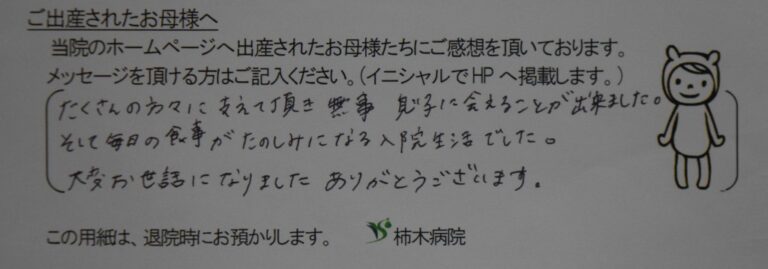 ご出産されたお母様へ
当院のホームページへ出産されたお母様たちにご感想を頂いております。
メッセージを頂ける方はご記入ください。（イニシャルでHPへ掲載します。）
たくさんの方々に支えて頂き 無事 息子に会えることが出来ました。
そして毎日の食事がたのしみになる入院生活でした。
大変お世話になりました ありがとうございます。
この用紙は、退院時にお預かりします。 柿木病院